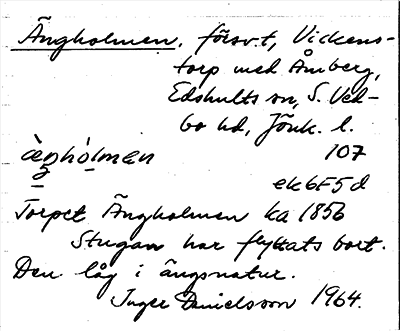 Ängholmen, försv.t, Vickens-
torp med Åmberg,
Edshults sn, S. Ved-
bo hd, Jönk. l.
ä̀ŋhólmen 107
ek6F5d
Torpet Ängholmen ka 1856
Stugan har flyttats bort.
Den låg i ängsnatur.
Inger Danielsson 1964.